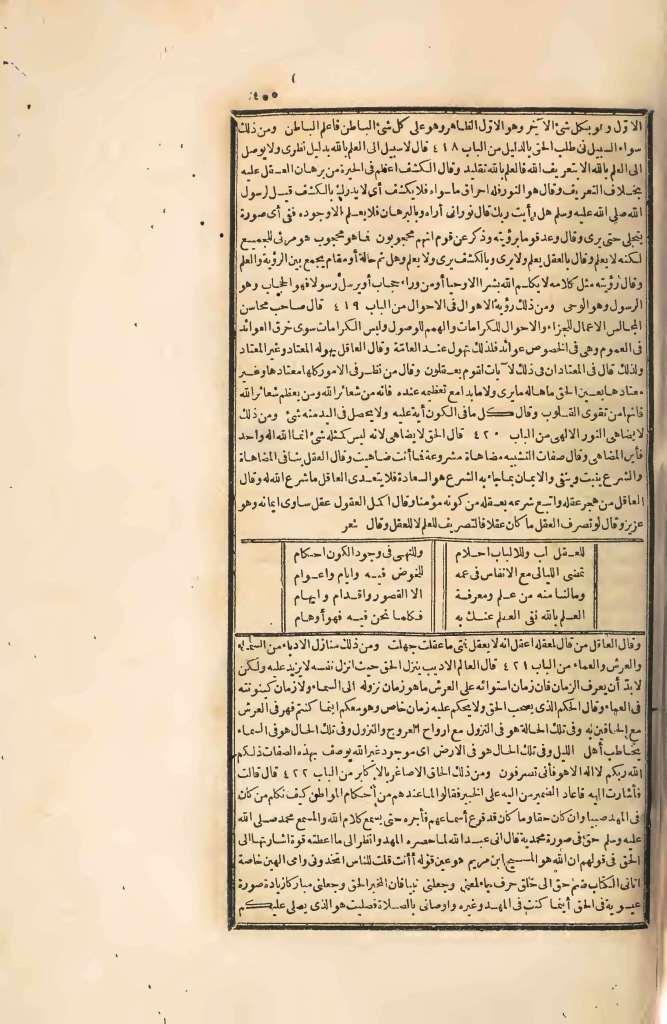 ٤٠٠
الاول وهو بكل شئ الآخر وهو الاول الظاهر وهو على كل شئ الباطن فاعلم الباطن ومن ذلك
سواء السبيل فى طلب الحق بالدليل من الباب ٤١٨ قال لا سبيل الى العلم بالله بدليل نظرى ولا يوصل
الى العلم بالله الا بتعريف الله فالعلم بالله تقليد وقال الكشف اعظم فى الحيرة من برهان العقل عليه
بخلاف التعريف وقال هو النور فله احراق ما سواه فلا يكشف أى لا يدرك بالكشف قيل لرسول
الله صلى الله عليه وسلم هل رأيت ربك قال نورانى أراه وبالبرهان فلا يعلم الا وجوده ففى أى صورة
يتجلى حتى يرى وقال وعد قوما برؤيته وذكر عن قوم انهم محجوبون فما هو محجوب هو مرئى للجميع
لكنه لا يعلم وقال بالعقل يعلم ولا يرى وبالكشف يرى ولا يعلم وهل ثم حالة أو مقام يجمع بين الرؤية والعلم
وقال رؤيته مثل كلامه لا يكلم الله بشرا الا وحيا أو من وراء حجاب أو يرسل رسولا فهو الحجاب وهو
الرسول وهو الوحى ومن ذلك رؤية الاهوال فى الاحوال من الباب ٤١٩ قال صاحب محاسن
المجالس الاعمال للجزاء والاحوال للكرامات والهمم للوصول وليس الكرامات سوى خرق العوائد
فى العموم وهى فى الخصوص عوائد فلذلك تهول عند العامة وقال العاقل يهوله المعتاد وغير المعتاد
ولذلك قال فى المعتاد ان فى ذلك لآيات لقوم يعقلون وقال من نظر فى الامور كلها معتادها وغير
معتادها بعين الحق ما هاله ما يرى ولا ما بدا مع تعظيمه عنده فانه من شعائر الله ومن يعظم شعائر الله
فانها من تقوى القلوب وقال كل ما فى الكون آية عليه ولا يحصل فى اليد منه شئ ومن ذلك
لا يضاهى النور الالهى من الباب ٤٢٠ قال الحق لا يضاهى لانه ليس كمثله شئ انما الله اله واحد
فأين المضاهى وقال صفات التشبيه مضاهاة مشروعة فما أنت ضاهيت وقال العقل ينافى المضاهاة
والشرع يثبت وينفى والايمان بما جاء به الشرع هو السعادة فلا يتعدى العاقل ما شرع الله له وقال
العاقل من هجر عقله واتبع شرعه بعقله من كونه مؤمنا وقال اكمل العقول عقل ساوى ايمانه وهو
عزيز وقال لو تصرف العقل ما كان عقلا فالتصريف للعلم لا للعقل وقال شعر
للعقل لب وللالباب احلام وللنهى فى وجود الكون احكام
تمضى الليالى مع الانفاس فى عمه للخوض فيه وايام واعوام
وما لنا منه من علم ومعرفة الا القصور واقدام وايهام
العلم بالله نفى العلم عنك به فكلما نحن فيه فهو أوهام
وقال العاقل من قال لعقله اعقل انه لا يعقل متى ما عقلت جهلت ومن ذلك منازل الادباء من السماء
والعرش والعماء من الباب ٤٢١ قال العالم الاديب ينزل الحق حيث انزل نفسه لا يزيد عليه ولكن
لا بد أن يعرف الزمان فان زمان استوائه على العرش ما هو زمان نزوله الى السماء ولا زمان كينونته
فى العماء وقال الحكم الذى يصحب الحق ولا يحكم عليه زمان خاص وهو معكم أينما كنتم فهو فى العرش
مع الحافين به وفى تلك الحالة هو فى النزول مع ارواح العروج والنزول وفى تلك الحال هو فى السماء
يخاطب أهل الليل وفى تلك الحال هو فى الارض اى موجود غير الله يوصف بهذه الصفات ذلكم
الله ربكم لا اله الا هو فأنى تصرفون ومن ذلك الحاق الاصاغر بالاكابر من الباب ٤٢٢ قال قالت
فأشارت اليه فأعاد الضمير من اليه على الخبير فقالوا لما عندهم من أحكام المواطن كيف نكلم من كان
فى المهد صبيا وان كان حقا وما كان قد قرع أسماعهم فأجره حتى يسمع كلام الله والمسمع محمد صلى الله
عليه وسلم حق فى صورة محمدية قال انى عبد الله لما حصره المهد وانظر الى ما اعطته قوة اشارتها الى
الحق فى قولهم ان الله هو المسيح ابن مريم هو عين قوله أأنت قلت للناس اتخذونى وأمى الهين خاصة
اتانى الكتاب ضم حق الى خلق حرف جاء لمعنى وجعلنى نبيا فان المخبر الحق وجعلنى مباركا زيادة صورة
عيسوية فى الحق أينما كنت فى المهد وغيره واوصانى بالصلاة فصليت هو الذى يصلى عليكم